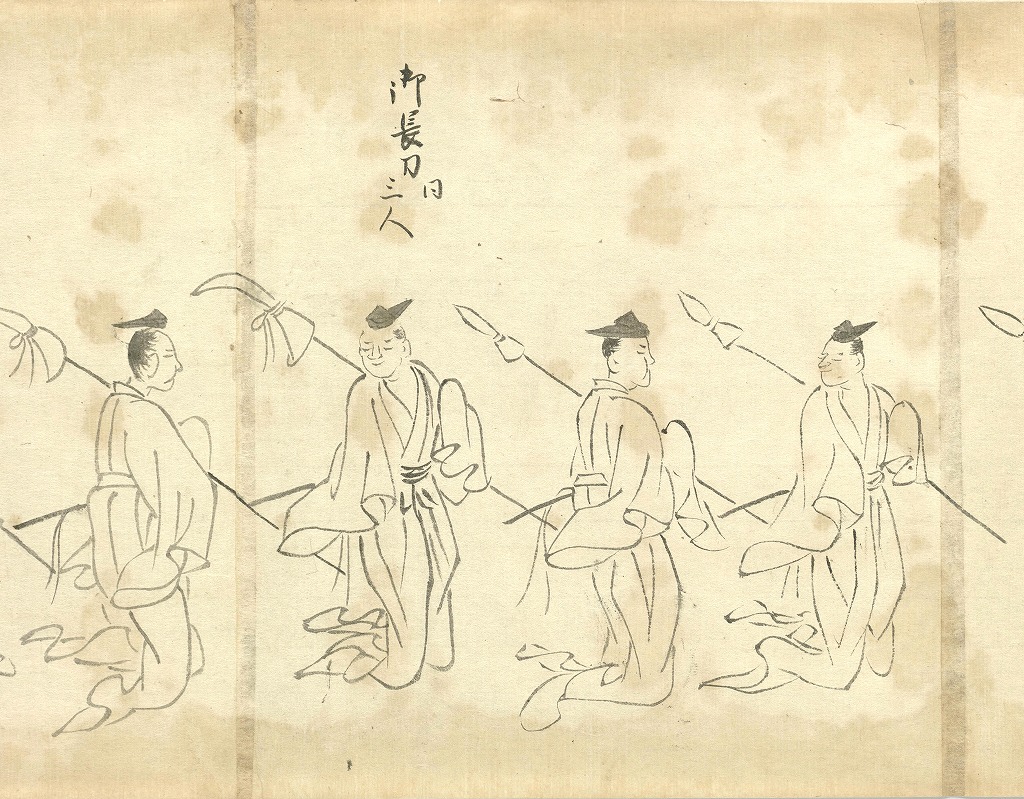 御長刀
日
三人